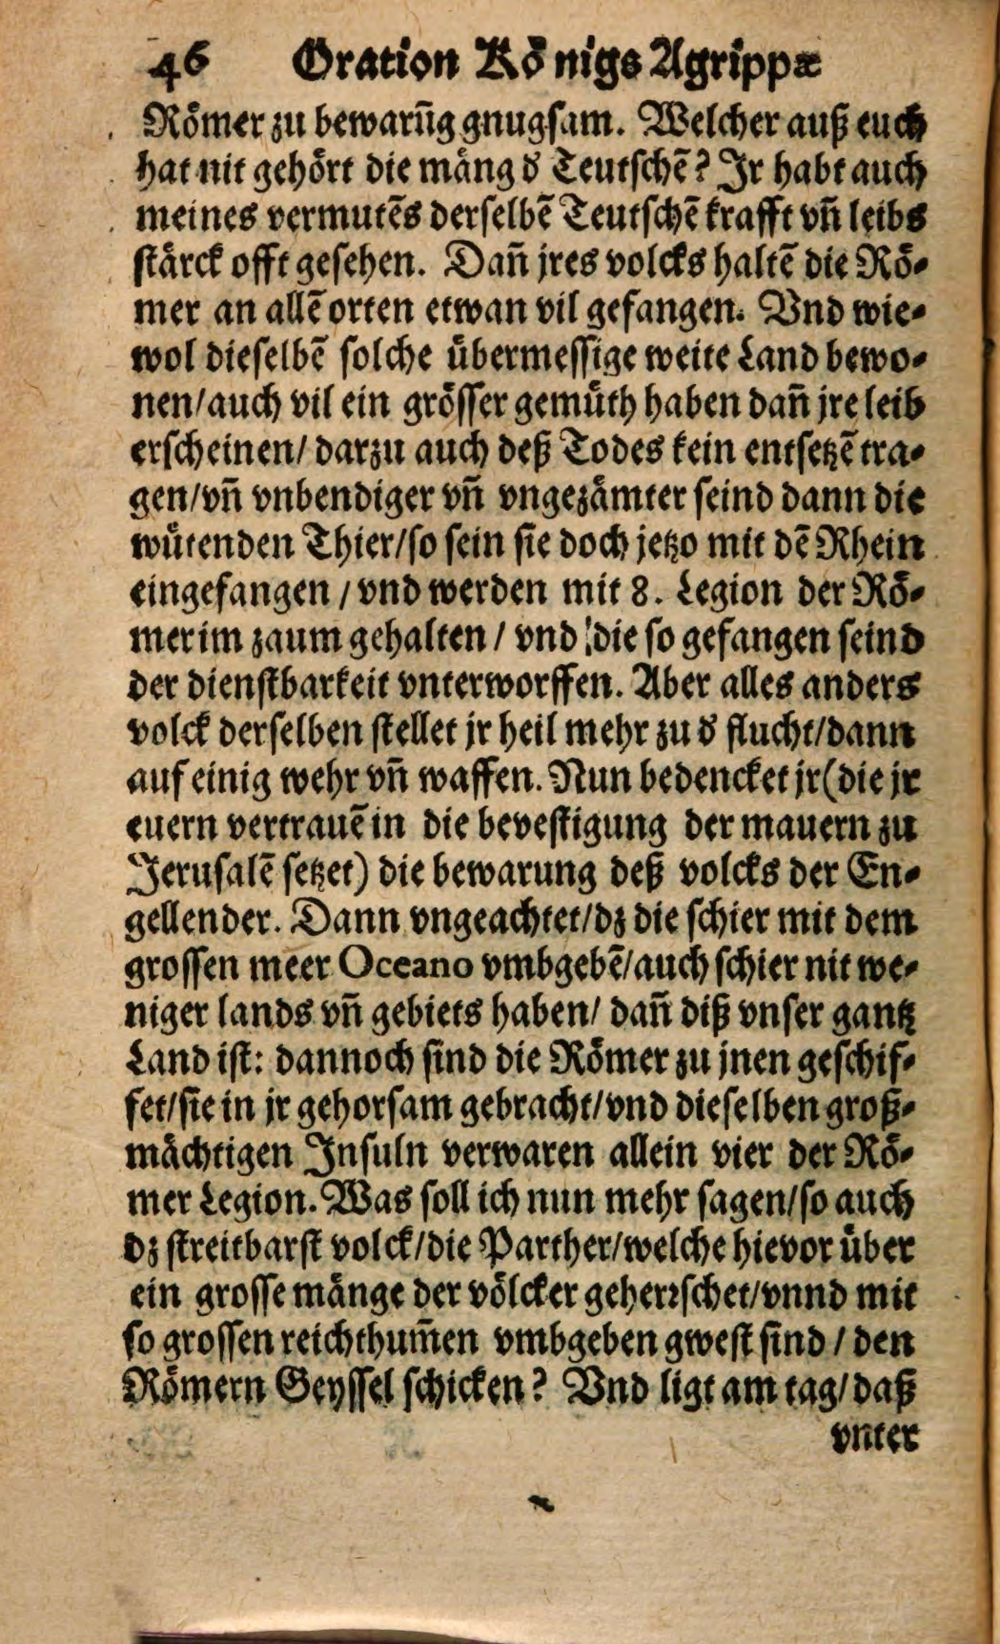 46 Oration Königs Agrippæ
Römer zu bewarũg gnugsam. Welcher auß euch
hat nit gehört die mäng ď Teutschẽ? Jr habt auch
meines vermutẽs derselbẽ Teutschẽ krafft vñ leibs
stärck offt gesehen. Dañ jres volcks haltẽ die Rö-
mer an allẽ orten etwan vil gefangen. Vnd wie-
wol dieselbẽ solche übermessige weite Land bewo-
nen/auch vil ein grösser gemüth haben dañ jre leib
erscheinen/ darzu auch deß Todes kein entsetzẽ tra-
gen/vñ vnbendiger vñ vngezämter seind dann die
wütenden Thier/so sein sie doch jetzo mit dẽ Rhein
eingefangen / vnd werden mit 8. Legion der Rö-
mer im zaum gehalten / vnd die so gefangen seind
der dienstbarkeit vnterworffen. Aber alles anders
volck derselben stellet jr heil mehr zu ď flucht/dann
auf einig wehr vñ waffen. Nun bedencket jr(die jr
euern vertrauẽ in die bevestigung der mauern zu
Jerusalẽ setzet) die bewarung deß volcks der En-
gellender. Dann vngeachtet/dz die schier mit dem
grossen meer Oceano vmbgebẽ/auch schier nit we-
niger lands vñ gebiets haben/ dañ diß vnser gantz
Land ist: dannoch sind die Römer zu jnen geschif-
fet/sie in jr gehorsam gebracht/vnd dieselben groß-
mächtigen Insuln verwaren allein vier der Rö-
mer Legion. Was soll ich nun mehr sagen/so auch
dz streitbarst volck/die Parther/welche hievor über
ein grosse mänge der völcker geherꝛschet/vnnd mit
so grossen reichthum̃en vmbgeben gwest sind / den
Römern Geyssel schicken? Vnd ligt am tag/daß
vnter